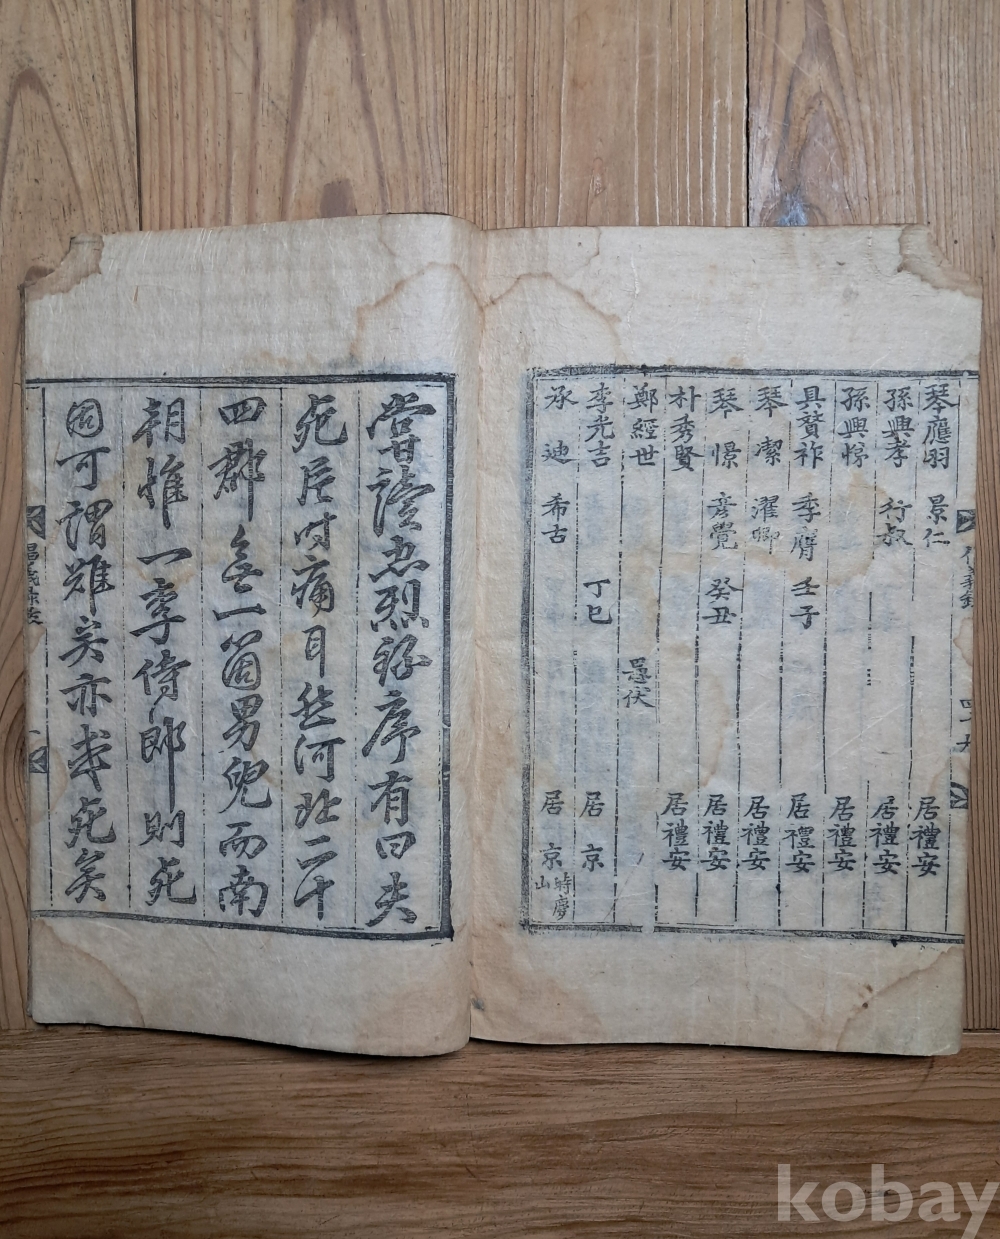 琴應羽 景仁 居禮安
孫興孝 行叔 居禮安
孫興悌 居禮安
具贊祚 季膺 壬子 居禮安
琴潔 濯卿 居禮安
琴憬 彦覺 癸丑 居禮安
朴秀賢 居禮安
鄭經世 愚伏
李光吉 丁巳 居京
承迪 希古 居京
嘗讀忠烈錄序有曰夫
死居時痛耳然河北二十
四郡無一箇男兒而南
朝惟一李侍郎則死
固可謂難矣亦或死矣
kobay